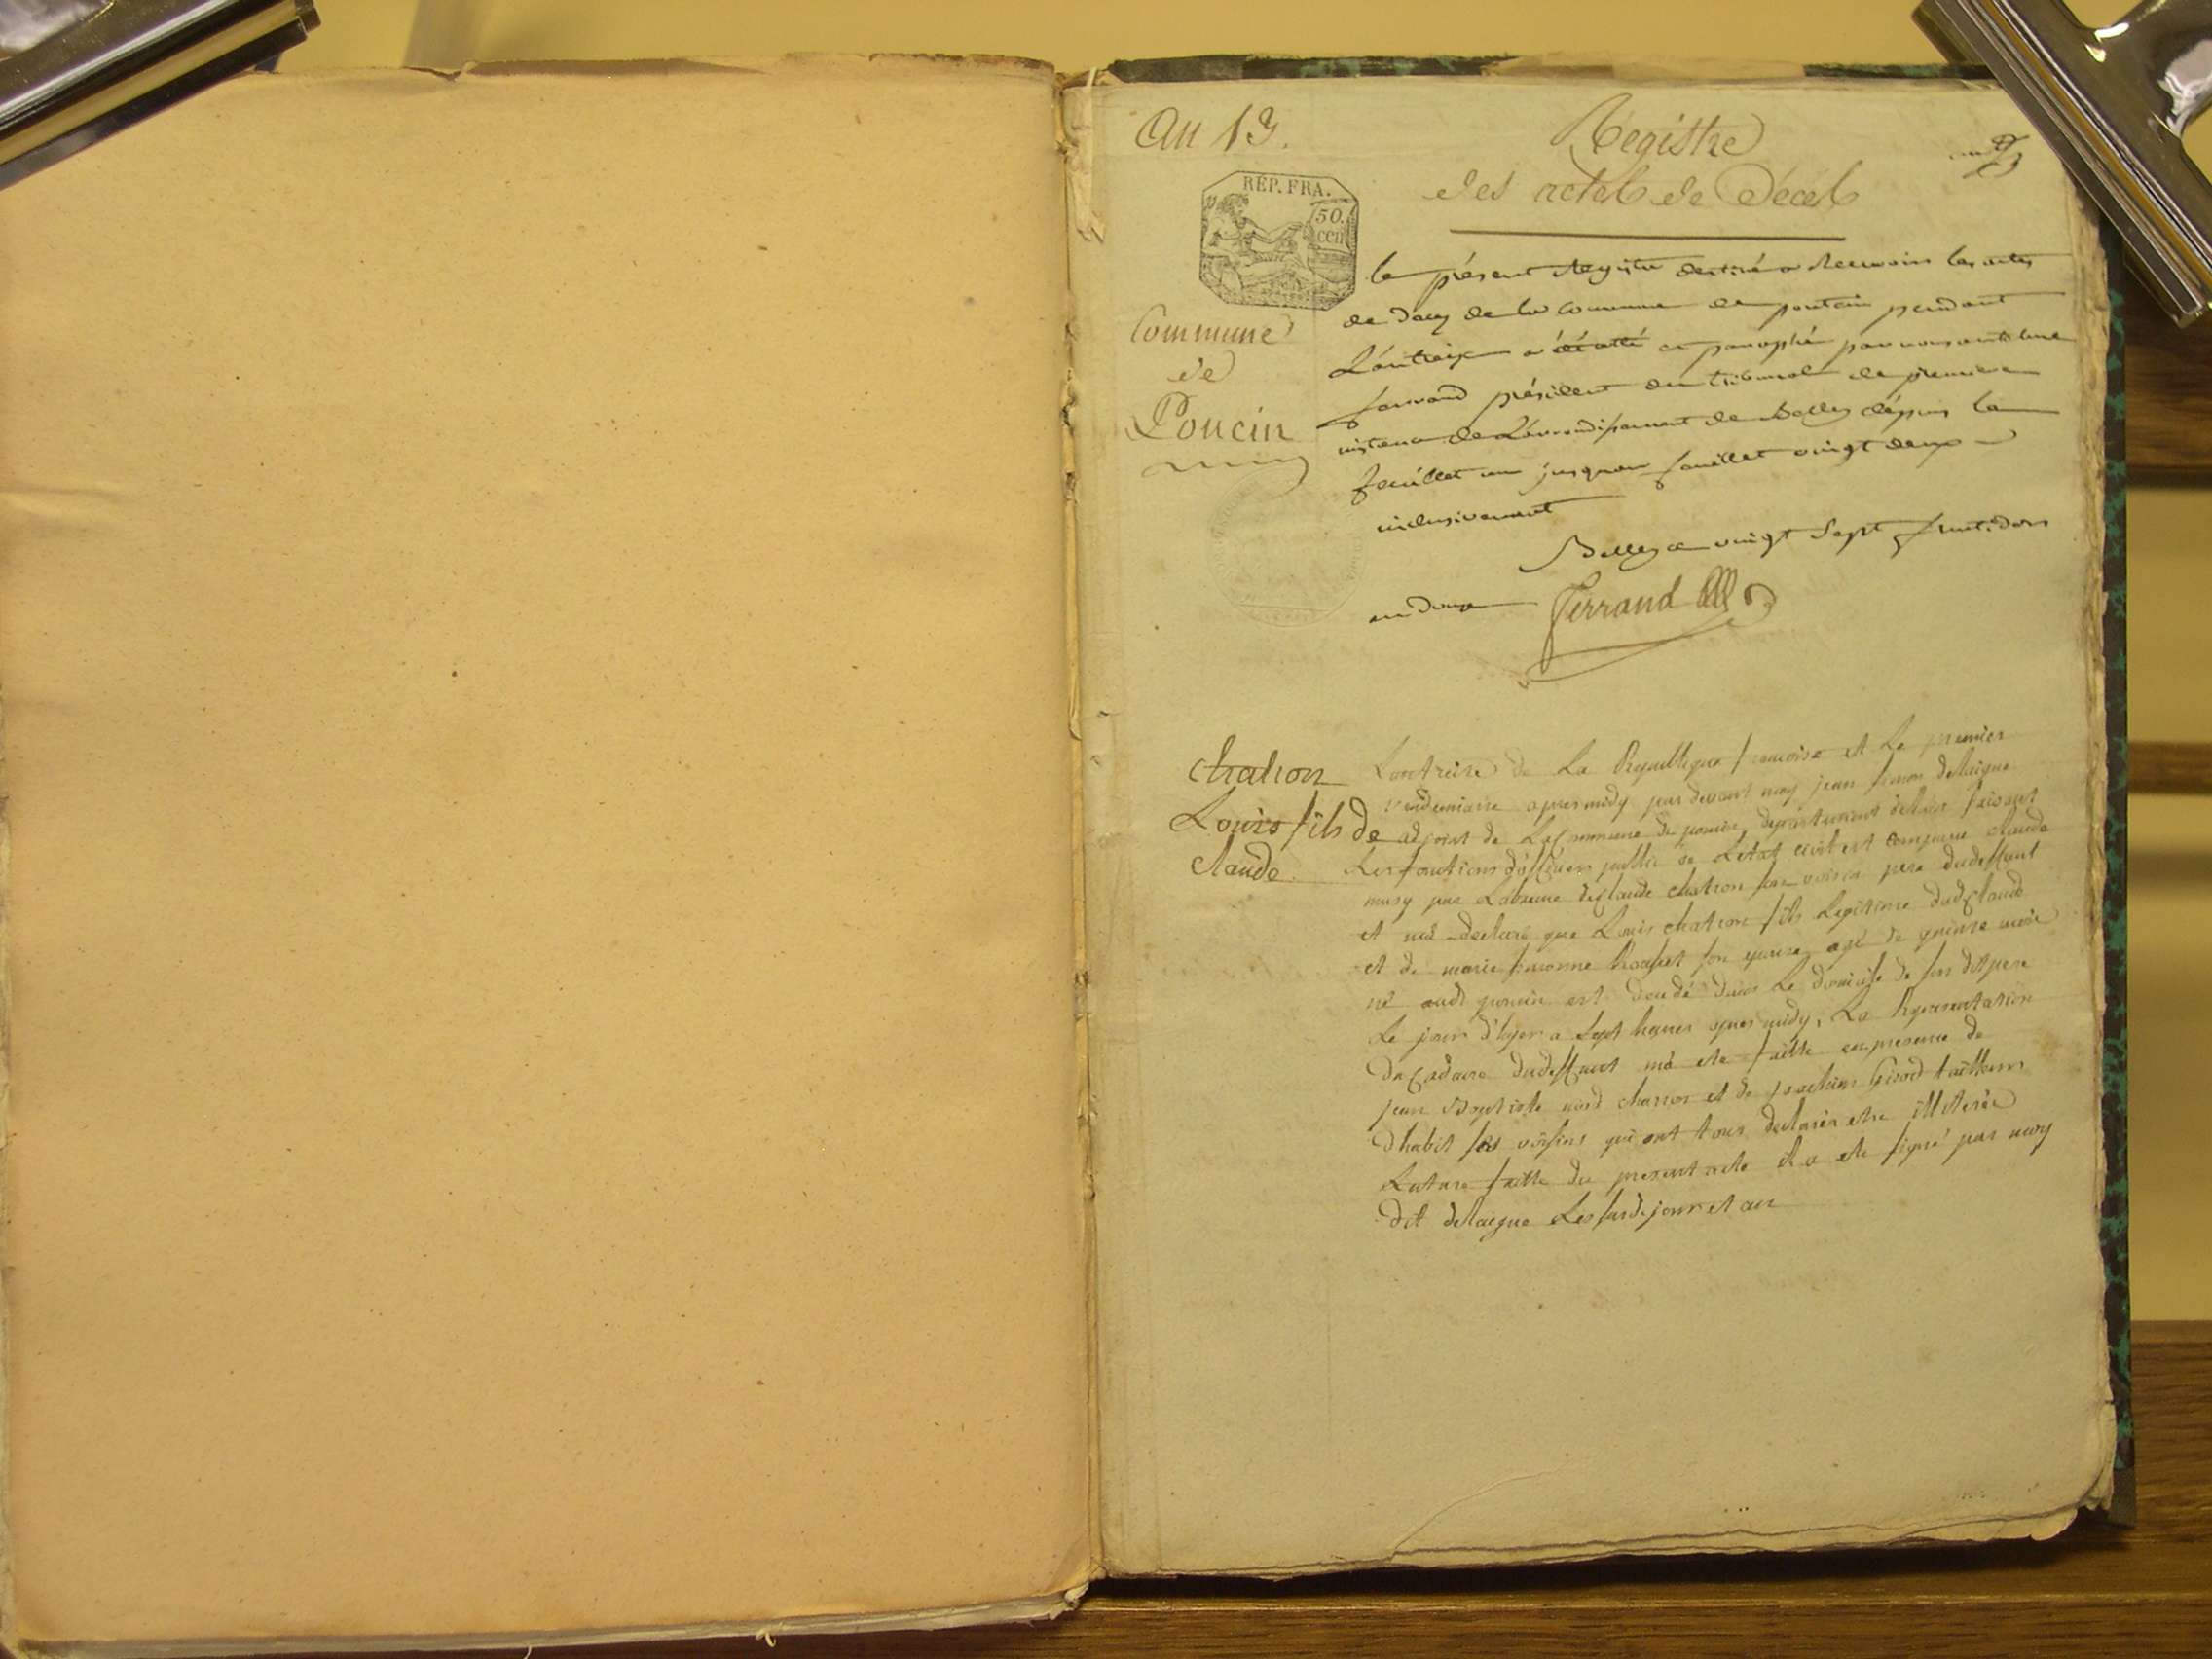 An 13.
Registre
des actes de Décès
REP. FRA.
50.
cen
Commune
de
Poncin
le présent Registre destiné a Recevoir les actes
de Deces de la Commune de poncin pendant
L'an treize a été cotté et paraphé par nous anthelme
ferrand président du tribunal de premiere
instance de L'arrondissement de Belley dépuis le
feuillet un jusqu'au feuillet vingt deux
inclusivement
Belley ce vingt Sept fructidor
an douze Ferrand
chatron
Louis fils de
claude.
L'an treize de La Republique francoise et Le premier
vendemiaire apres midy par devant moy jean simon delaigue
adjoint de La Commune de poncin departement de L'ain faisant
Les fonctions d'officier public de L'etat civil est comparu claude
musy par Labsence de Claude chatron son voisin pere du deffunt
et m'a declaré que Louis chatron fils Legitime dud Claude
et de marie simonne son epouse agé de quinze mois
né aud poncin est decedé dans Le domicile de son dit pere
Le jour d'hyer a Sept heures apres midy, La Representation
du Cadavre du deffunt m'a ete faitte en presence de
jean Baptiste charron et de joachim Girod tailleur
dhabit ses voisins qui ont tous declarés etre illiterés
Lecture faitte du present acte il a ete signé par moy
dit delaigue Les susd jour et an